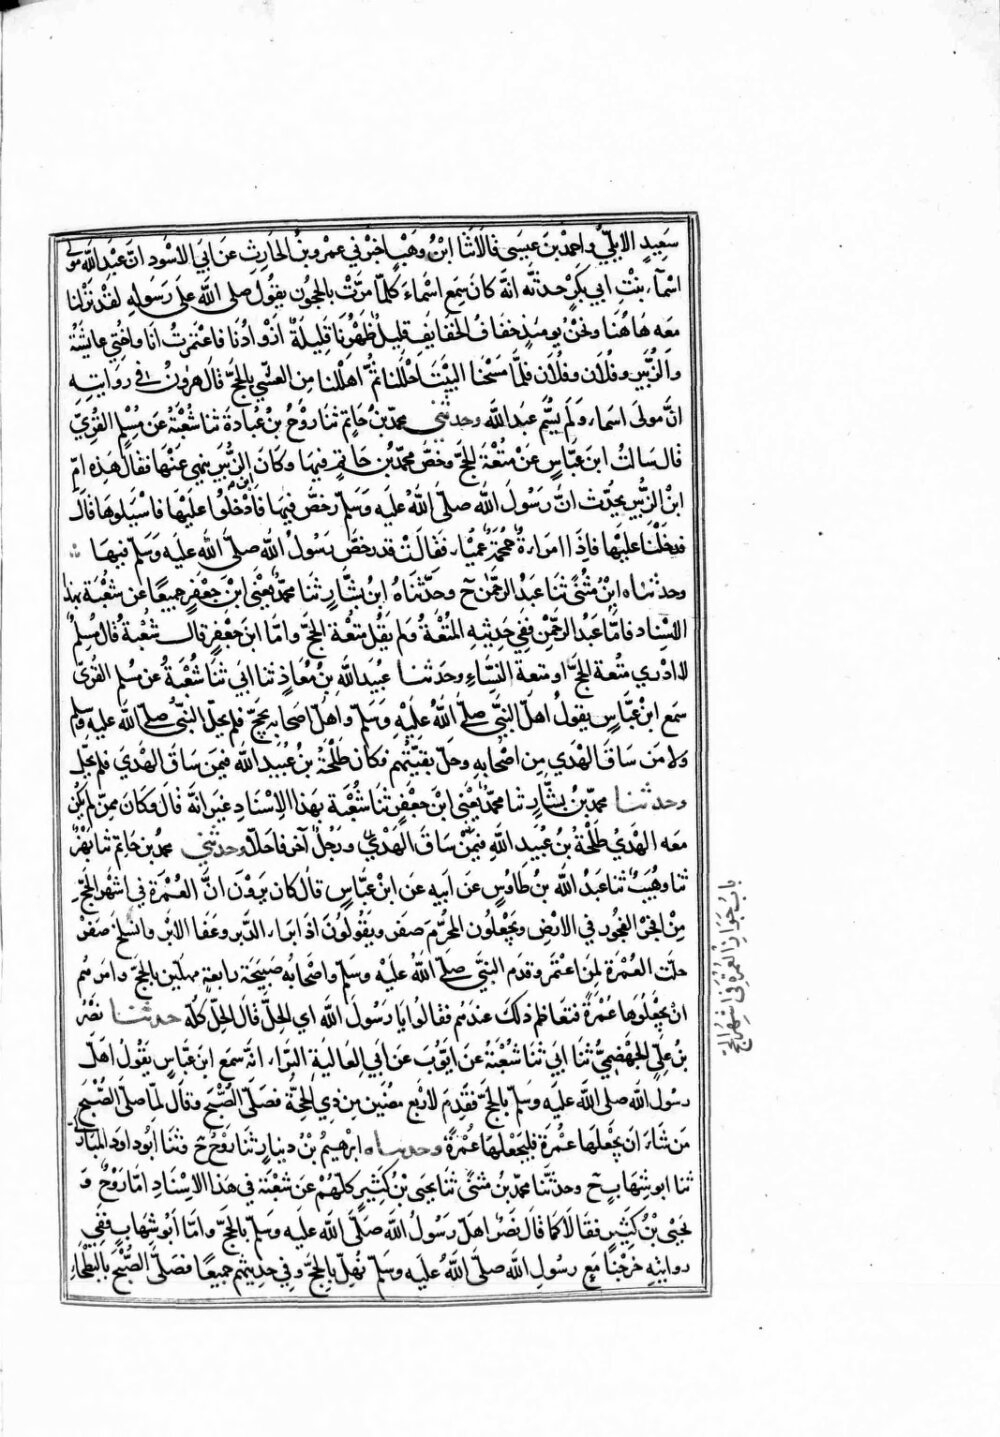 سَعِيدٍ الاَيْلِيُّ واحمدُ بنَ عِيسَى قالاَ ثنا ابْنُ وَهْبٍ اخبرَنِي عمرو بنُ الحارِثِ عَن اَبِي الاسْوَدِ انَّ عبدَ اللَّه مولَى
اسْمآءَ بنْتِ ابي بكرٍ حدثهُ انّهُ كانَ سمِعَ اسْماءَ كُلّما مرّتْ بالحجُونِ يقولُ صلى اللَّه على رَسولِهِ لقَدْ نزلنا
معه هَا هُنَا ونحنُ يومئذٍ خِفافُ الحقايبِ قليلٌ ظهْرُنا قليلةٌ ازْوادُنا فاعتمرتُ انا واختِي عايشةُ
والزُّبَيرُ وفُلانٌ وفُلانٌ فلمَّا مسَحْنا البيْتَ احْلَلْنا ثمَّ اهلَلْنا مِن العشِي بالحجِّ قالَ هرونُ فى روايَتِهِ
انَّ مولى اسماءَ ولَم يُسَمِّ عبدَ اللَّه وحدثني محمدُ بنُ حاتِمٍ ثنا رَوْحُ بنُ عُبادةَ ثنا شُعْبَةُ عَن مُسْلِمٍ القُرِّيِّ
قال سالتُ ابنَ عبّاسٍ عَن متعَةِ الحجِّ فرخصَ فيهَا وكانَ ابنُ الزُّبَيرِ ينهي عنْهَا فقالَ هَذِهِ امُّ
ابنِ الزُّبَيرِ يحدّث انَّ رسُولَ اللَّه صلّى اللَّهُ علَيهِ وسَلّم رخصَّ فيهَا فادْخلُوا علَيْهَا فاسْيَلوهَا قالَ
فدخَلْنا علَيْهَا فاِذَا امراةٌ ضخمَةٌ عمْياء فقالَتْ قد رخصَّ رسُولُ اللَّه صلّى اللَّه علَيهِ وسَلّم فيهَا
وحدثناه ابْنُ مُثنًّى ثنا عبدُ الرحمٰنِ ح وحدّثناهُ ابنُ بشّارٍ ثنا محمدٌ يعْنِي ابنَ جعْفرٍ جميعًا عن شعْبةَ بهذا
الاسْنادِ فامّا عبدُ الرحمٰنِ ففِي حَديثِهِ المتْعَةُ ولم يقُلْ متعَةُ الحجِّ وامّا ابنُ جعْفرٍ قالَ شعْبةُ قال مسْلِمٌ
لا ادْري متْعة الحجِّ او متعة النِّسَاءِ وحدثنا عبيدُ اللَّه بنُ مُعاذٍ ثنا ابي ثنا شُعْبَةُ عن مسلم القرِّيِّ
سمِعَ ابنَ عبّاسٍ يقولُ اهلَّ النبيُّ صلّى اللَّهُ علَيْهِ وسَلّم بعمرة واهلَّ اصحابه بحجٍّ فلم يحلَّ النبيُّ صلى اللَّه عليه وسلم
ولا مَن ساقَ الهَدْيَ مِن اصْحابِهِ وحلَّ بقيّتُهُم فكانَ طلْحَةُ بنُ عُبَيدِ اللَّه فيمَن ساقَ الهَدْيَ فلم يحِلَّ
وحدثنا محمدُ بنُ بشّارٍ ثنا محمدٌ يعْنِي ابنَ جعفرٍ ثنا شعْبَةُ بهَذا الاسْنادِ غيرَ انّه قالَ وكانَ ممّن لم يكُن
معَه الهَدْيُ طلْحَةُ بنُ عُبَيدِ اللَّه ورجُلٌ آخرُ فاحَلاَّ وحدثني محمدُ بن حاتمٍ ثنا بَهْزٌ
ثنا وُهَيْبٌ ثنا عبدُ اللَّه بنُ طاوُسٍ عن ابيهِ عنَ ابنِ عبّاسٍ قالَ كانوا يرَوْنَ انَّ العُمْرَةَ في اشْهُرِ الحجِّ
مِنْ افجَرِ الفجُورِ في الارْضِ ويجْعلُونَ المحرَّمَ صفَرَ ويقُولُونَ اذَا برَاءَ الدَّبرُ وعَفَا الاثَرُ وانْسلَخَ صفَرْ
حلّتِ العُمْرةُ لمِنْ اعْتمَرْ وقدِمَ النبيُّ صلّى اللَّهُ علَيْهِ وسَلّم واصْحابُه صَبِيحَةَ رابعةٍ مهِلّينَ بالحجِّ وامرَهُم
انْ يجْعلُوهَا عُمْرةً فتَعاظمَ ذلكَ عندَهُم فقالُوا يا رسُولَ اللَّه اي الحِلِّ قالَ الحلُّ كُلّه حدثنا نصْرُ
بنُ علِيٍّ الجَهْضَمِيُّ ثنا ابي ثنا شُعْبَةُ عَن ايّوبَ عَن اَبي العاليةِ البَرّاءِ انّهُ سمِعَ ابنَ عبّاسٍ يقُولُ اهلَّ
رسُولُ اللَّه صلى اللَّه علَيهِ وسَلّم بالحجِّ فقدِمَ لاربَعٍ مضَيْنَ مِن ذِي الحِجَّةِ فصَلّى الصُّبْحَ وقالَ لمّا صلّى الصُّبْحَ
مَن شاءَ ان يجْعلَهَا عُمْرةً فليجْعلْهَا عُمْرةً وحدثناه ابرهيمُ بنُ دينارٍ ثنا رَوْحٌ ح وثنا ابُو داودَ المُبارَكِي
ثنا ابو شِهَابٍ ح وحدّثنا محمدُ بن مثنًّى ثنا يحيى بنُ كثيرٍ كلّهُمْ عَن شعْبَةَ في هَذا الاسْنادِ امّا رَوْحٌ وَ
يحيى بْنُ كثيرٍ فقَالاَ كمَا قالَ نَصْر اهلّ رَسُولُ اللَّه صَلّى اللَّه علَيهِ وسَلّم بالحجِّ وامّا ابُو شِهابٍ ففِي
روايَتِهِ خرَجْنا معَ رسُولِ اللَّه صلّى اللَّهُ علَيهِ وسَلّم نُهِلُّ بالحجِّ وفِي حدِيثِهِم جميعًا فصَلّى الصُّبْحَ بالبَطْحاءِ
باب جواز العمرة فى اشهر الحج